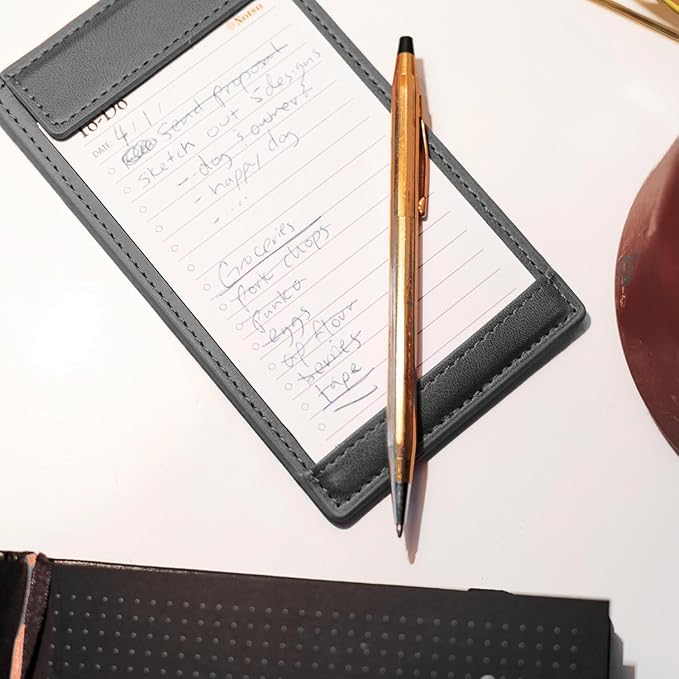 Notsu
To-Do
DATE 4/1/
Send proposal
sketch out 5 designs
- dog & owner?
- happy dog
- ...
Groceries
pork chops
panko
eggs
ap flour
berries
tape